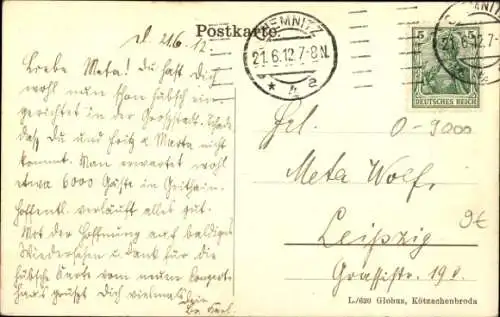 Postkarte
d. 21.6.12.
CHEMNITZ
21.6.12.7-8N.
* 4 a
CHEMNITZ
21.6.12.7-
5 5
DEUTSCHES REICH
Liebe Meta! Du hast Dich
wohl nun schon hübsch ein
gerichtet in der Großstadt. Schade
daß Du und Fritz u Marta nicht
kommt. Man erwartet wohl
etwa 6000 Gäste in Geithain.
Hoffentl. verläuft alles gut.
Mit der Hoffnung auf baldiges
Wiedersehen u. Dank für die
hübsche Karte vom neuen Konzert
haus grüßt Dich vielmals
Dein
Br. Karl.
Frl.
Meta Wolf,
Leipzig
Grassistr. 19
0-9000
9€
L./620 Globus, Kötzschenbroda